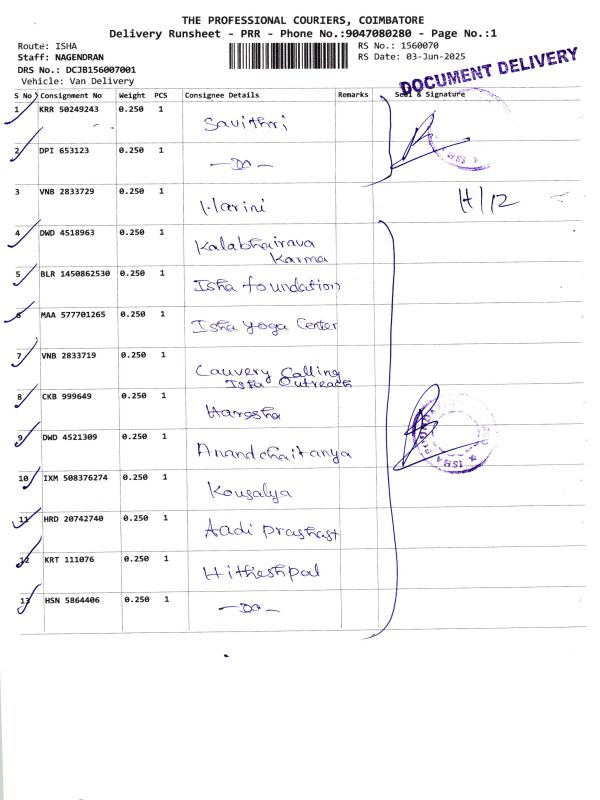 THE PROFESSIONAL COURIERS, COIMBATORE
Delivery Runsheet - PRR - Phone No.:9047080280 - Page No.:1
Route: ISHA
Staff: NAGENDRAN
DRS No.: DCJB156007001
Vehicle: Van Delivery
RS No.: 1560070
RS Date: 03-Jun-2025
DOCUMENT DELIVERY
S No Consignment No Weight PCS Consignee Details Remarks Seal & Signature
1 KRR 50249243 0.250 1 Savithri
2 DPI 653123 0.250 1 —Do—
3 VNB 2833729 0.250 1 Harini H/12
4 DWD 4518963 0.250 1 Kalabhairava
Karma
5 BLR 1450862530 0.250 1 Isha foundation
6 MAA 577701265 0.250 1 Isha yoga Center
7 VNB 2833719 0.250 1 Cauvery Calling
Isha Outreach
8 CKB 999649 0.250 1 Haresha
9 DWD 4521309 0.250 1 Anandchaitanya
10 IXM 508376274 0.250 1 Kousalya
11 HRD 20742740 0.250 1 Aadi prashast
12 KRT 111076 0.250 1 Hitheshpal
13 HSN 5864406 0.250 1 —Do—